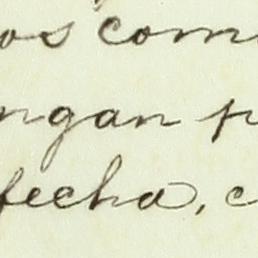 os com
ngan p
fecha, c